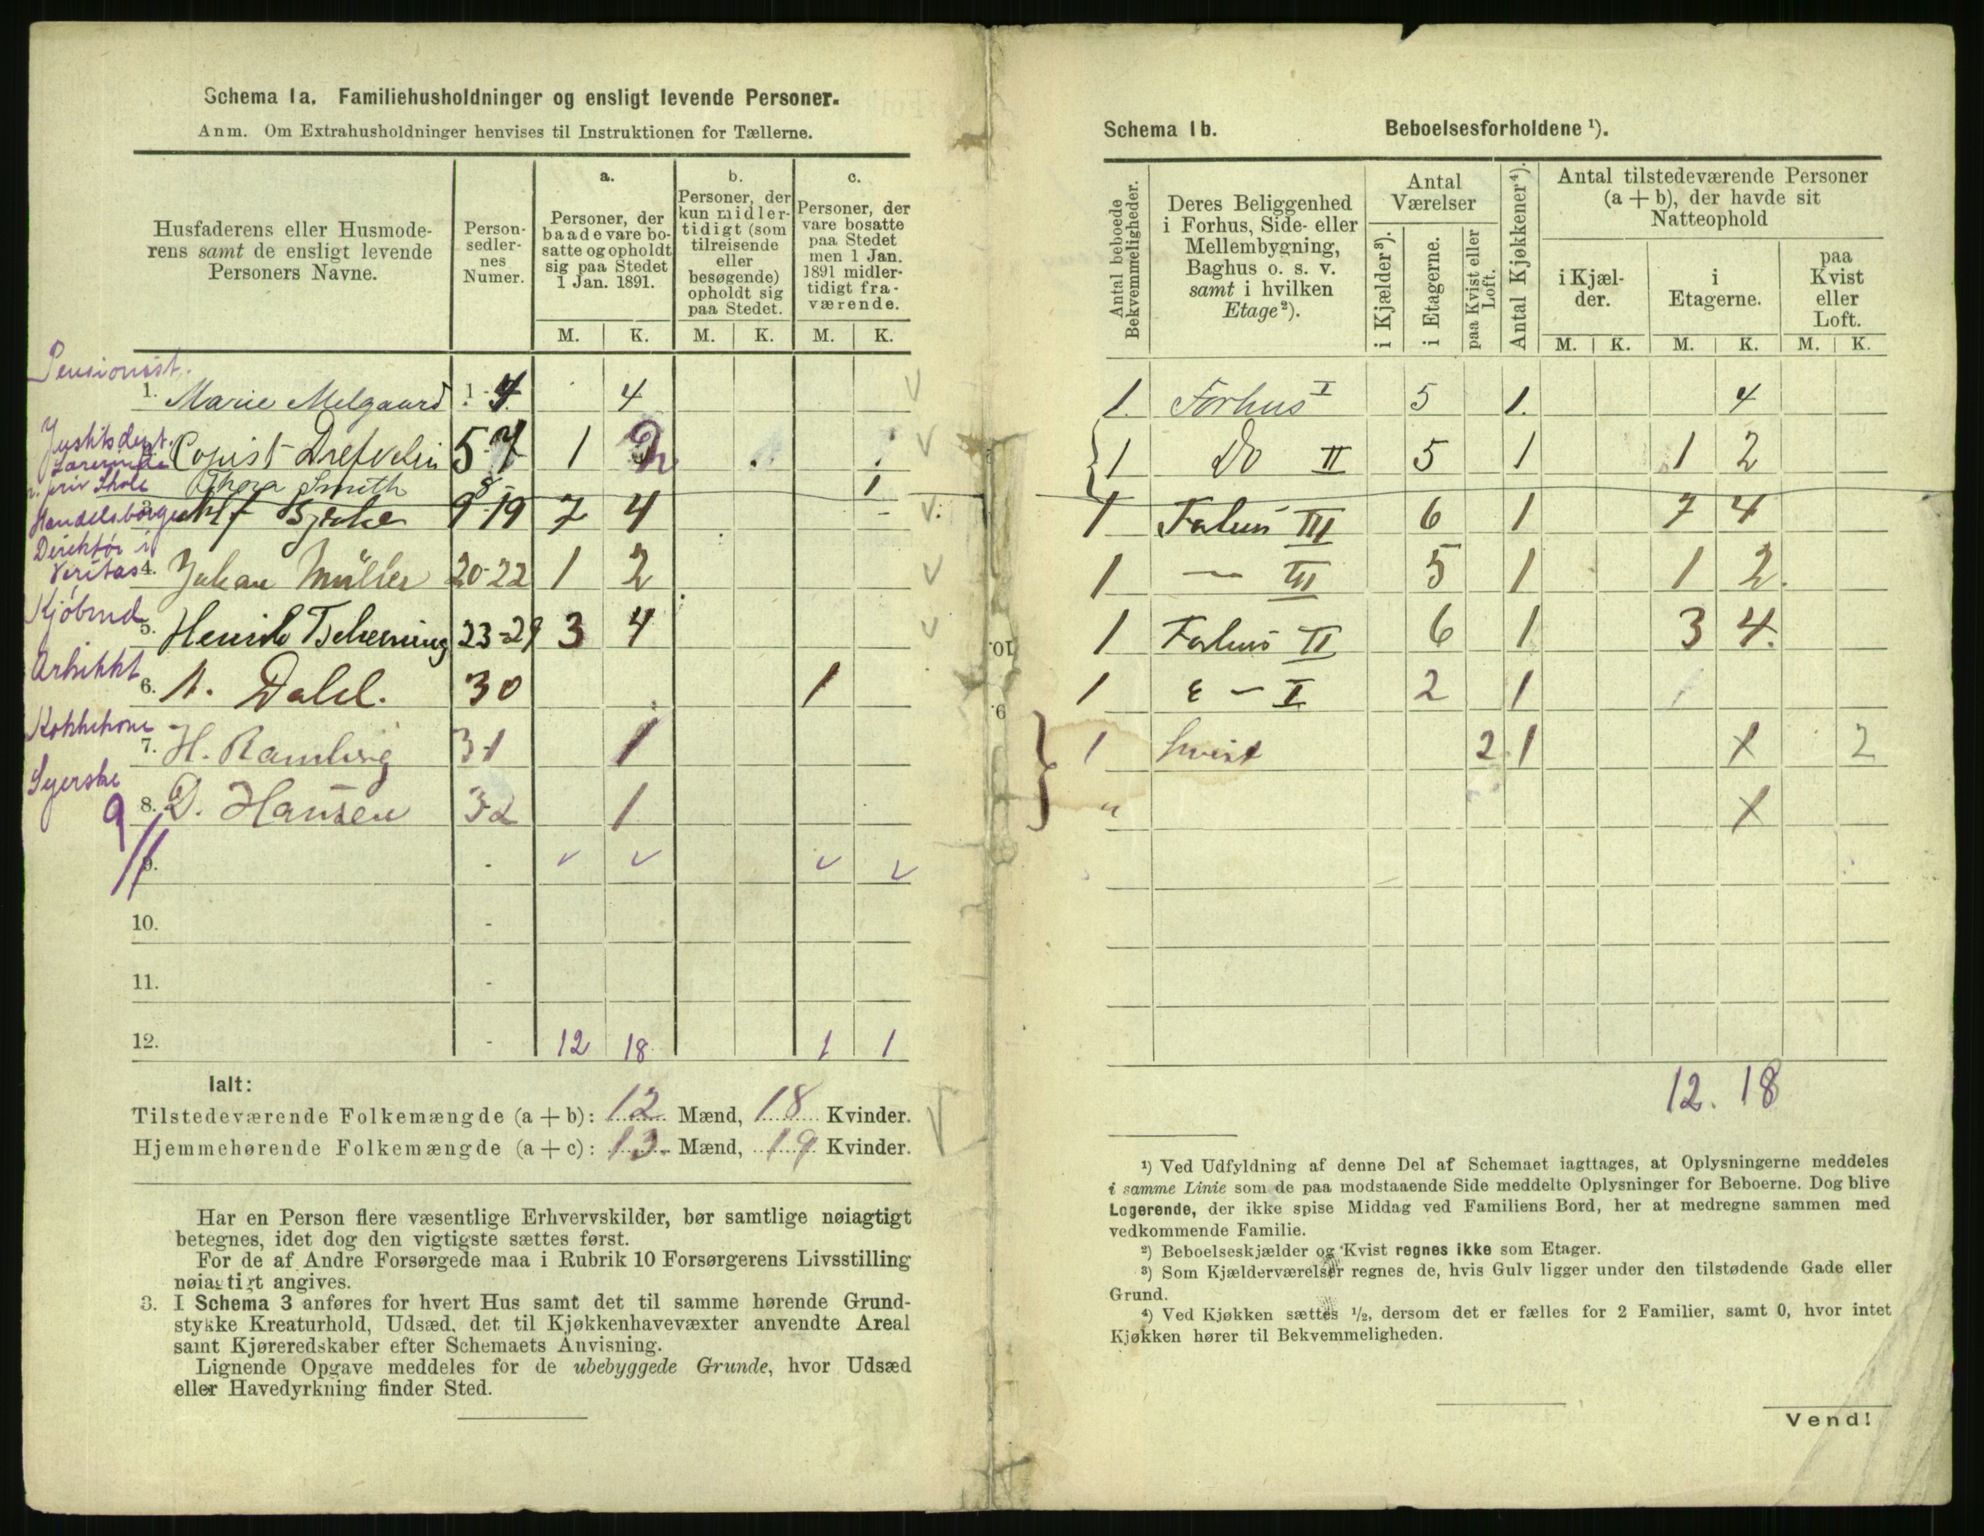 Schema 1a. Familiehusholdninger og ensligt levende Personer.
Anm. Om Extrahusholdninger henvises til Instruktionen for Tællerne.
Husfaderens eller Husmoderens samt de ensligt levende Personers Navne.
Personsedlernes Numer.
a. Personer, der baade vare bosatte og opholdt sig paa Stedet 1 Jan. 1891.
b. Personer, der kun midlertidigt (som tilreisende eller besøgende) opholdt sig paa Stedet.
c. Personer, der vare bosatte paa Stedet men 1 Jan. 1891 midlertidigt fraværende.
M. K. M. K. M. K.
Pensionist.
1. Marie Melgaard 1-4 4
Justitsdept.
2. Copist Drefvelin 5-7 1 2
Lærerinde
v. priv Skole Thora Smith 8 1
Handelsborger
3. Bjerke 9-19 7 4
Direktør i
Veritas 4. Johan Müller 20-22 1 2
Kjøbmd
5. Henrik Tscherning 23-29 3 4
Arkitekt
6. A. Dahl. 30 1
Kokkekone
7. H. Ramberg 31 1
Syerske
8. D. Hansen 32 1
9
9. -
10. -
11. -
12. - 12 18 1 1
Ialt:
Tilstedeværende Folkemængde (a + b): 12 Mænd, 18 Kvinder.
Hjemmehørende Folkemængde (a + c): 13 Mænd, 19 Kvinder.
Har en Person flere væsentlige Erhvervskilder, bør samtlige nøiagtigt
betegnes, idet dog den vigtigste sættes først.
For de af Andre Forsørgede maa i Rubrik 10 Forsørgerens Livsstilling
nøiagtigt angives.
3. I Schema 3 anføres for hvert Hus samt det til samme hørende Grund-
stykke Kreaturhold, Udsæd, det til Kjøkkenhavevæxter anvendte Areal
samt Kjøreredskaber efter Schemaets Anvisning.
Lignende Opgave meddeles for de ubebyggede Grunde, hvor Udsæd
eller Havedyrkning finder Sted.
10.
9.
Schema 1b. Beboelsesforholdene ¹).
Antal beboede Bekvemmeligheder.
Deres Beliggenhed i Forhus, Side- eller Mellembygning, Baghus o. s. v. samt i hvilken Etage²).
Antal Værelser
i Kjælder³).
i Etagerne.
paa Kvist eller Loft.
Antal Kjøkkener⁴).
Antal tilstedeværende Personer (a + b), der havde sit Natteophold
i Kjælder.
i Etagerne.
paa Kvist eller Loft.
M. K. M. K. M. K.
1. Forhus I 5 1. 4
1 Do II 5 1 1 2
1 Forhus III 6 1 7 4
1 — III 5 1 1 2.
1 Forhus II 6 1 3 4.
1 — I 2 1
1 Kvist 2 1 2
"
12. 18
¹) Ved Udfyldning af denne Del af Schemaet iagttages, at Oplysningerne meddeles
i samme Linie som de paa modstaaende Side meddelte Oplysninger for Beboerne. Dog blive
Logerende, der ikke spise Middag ved Familiens Bord, her at medregne sammen med
vedkommende Familie.
²) Beboelseskjælder og Kvist regnes ikke som Etager.
³) Som Kjælderværelser regnes de, hvis Gulv ligger under den tilstødende Gade eller
Grund.
⁴) Ved Kjøkken sættes ½, dersom det er fælles for 2 Familier, samt 0, hvor intet
Kjøkken hører til Bekvemmeligheden.
Vend!